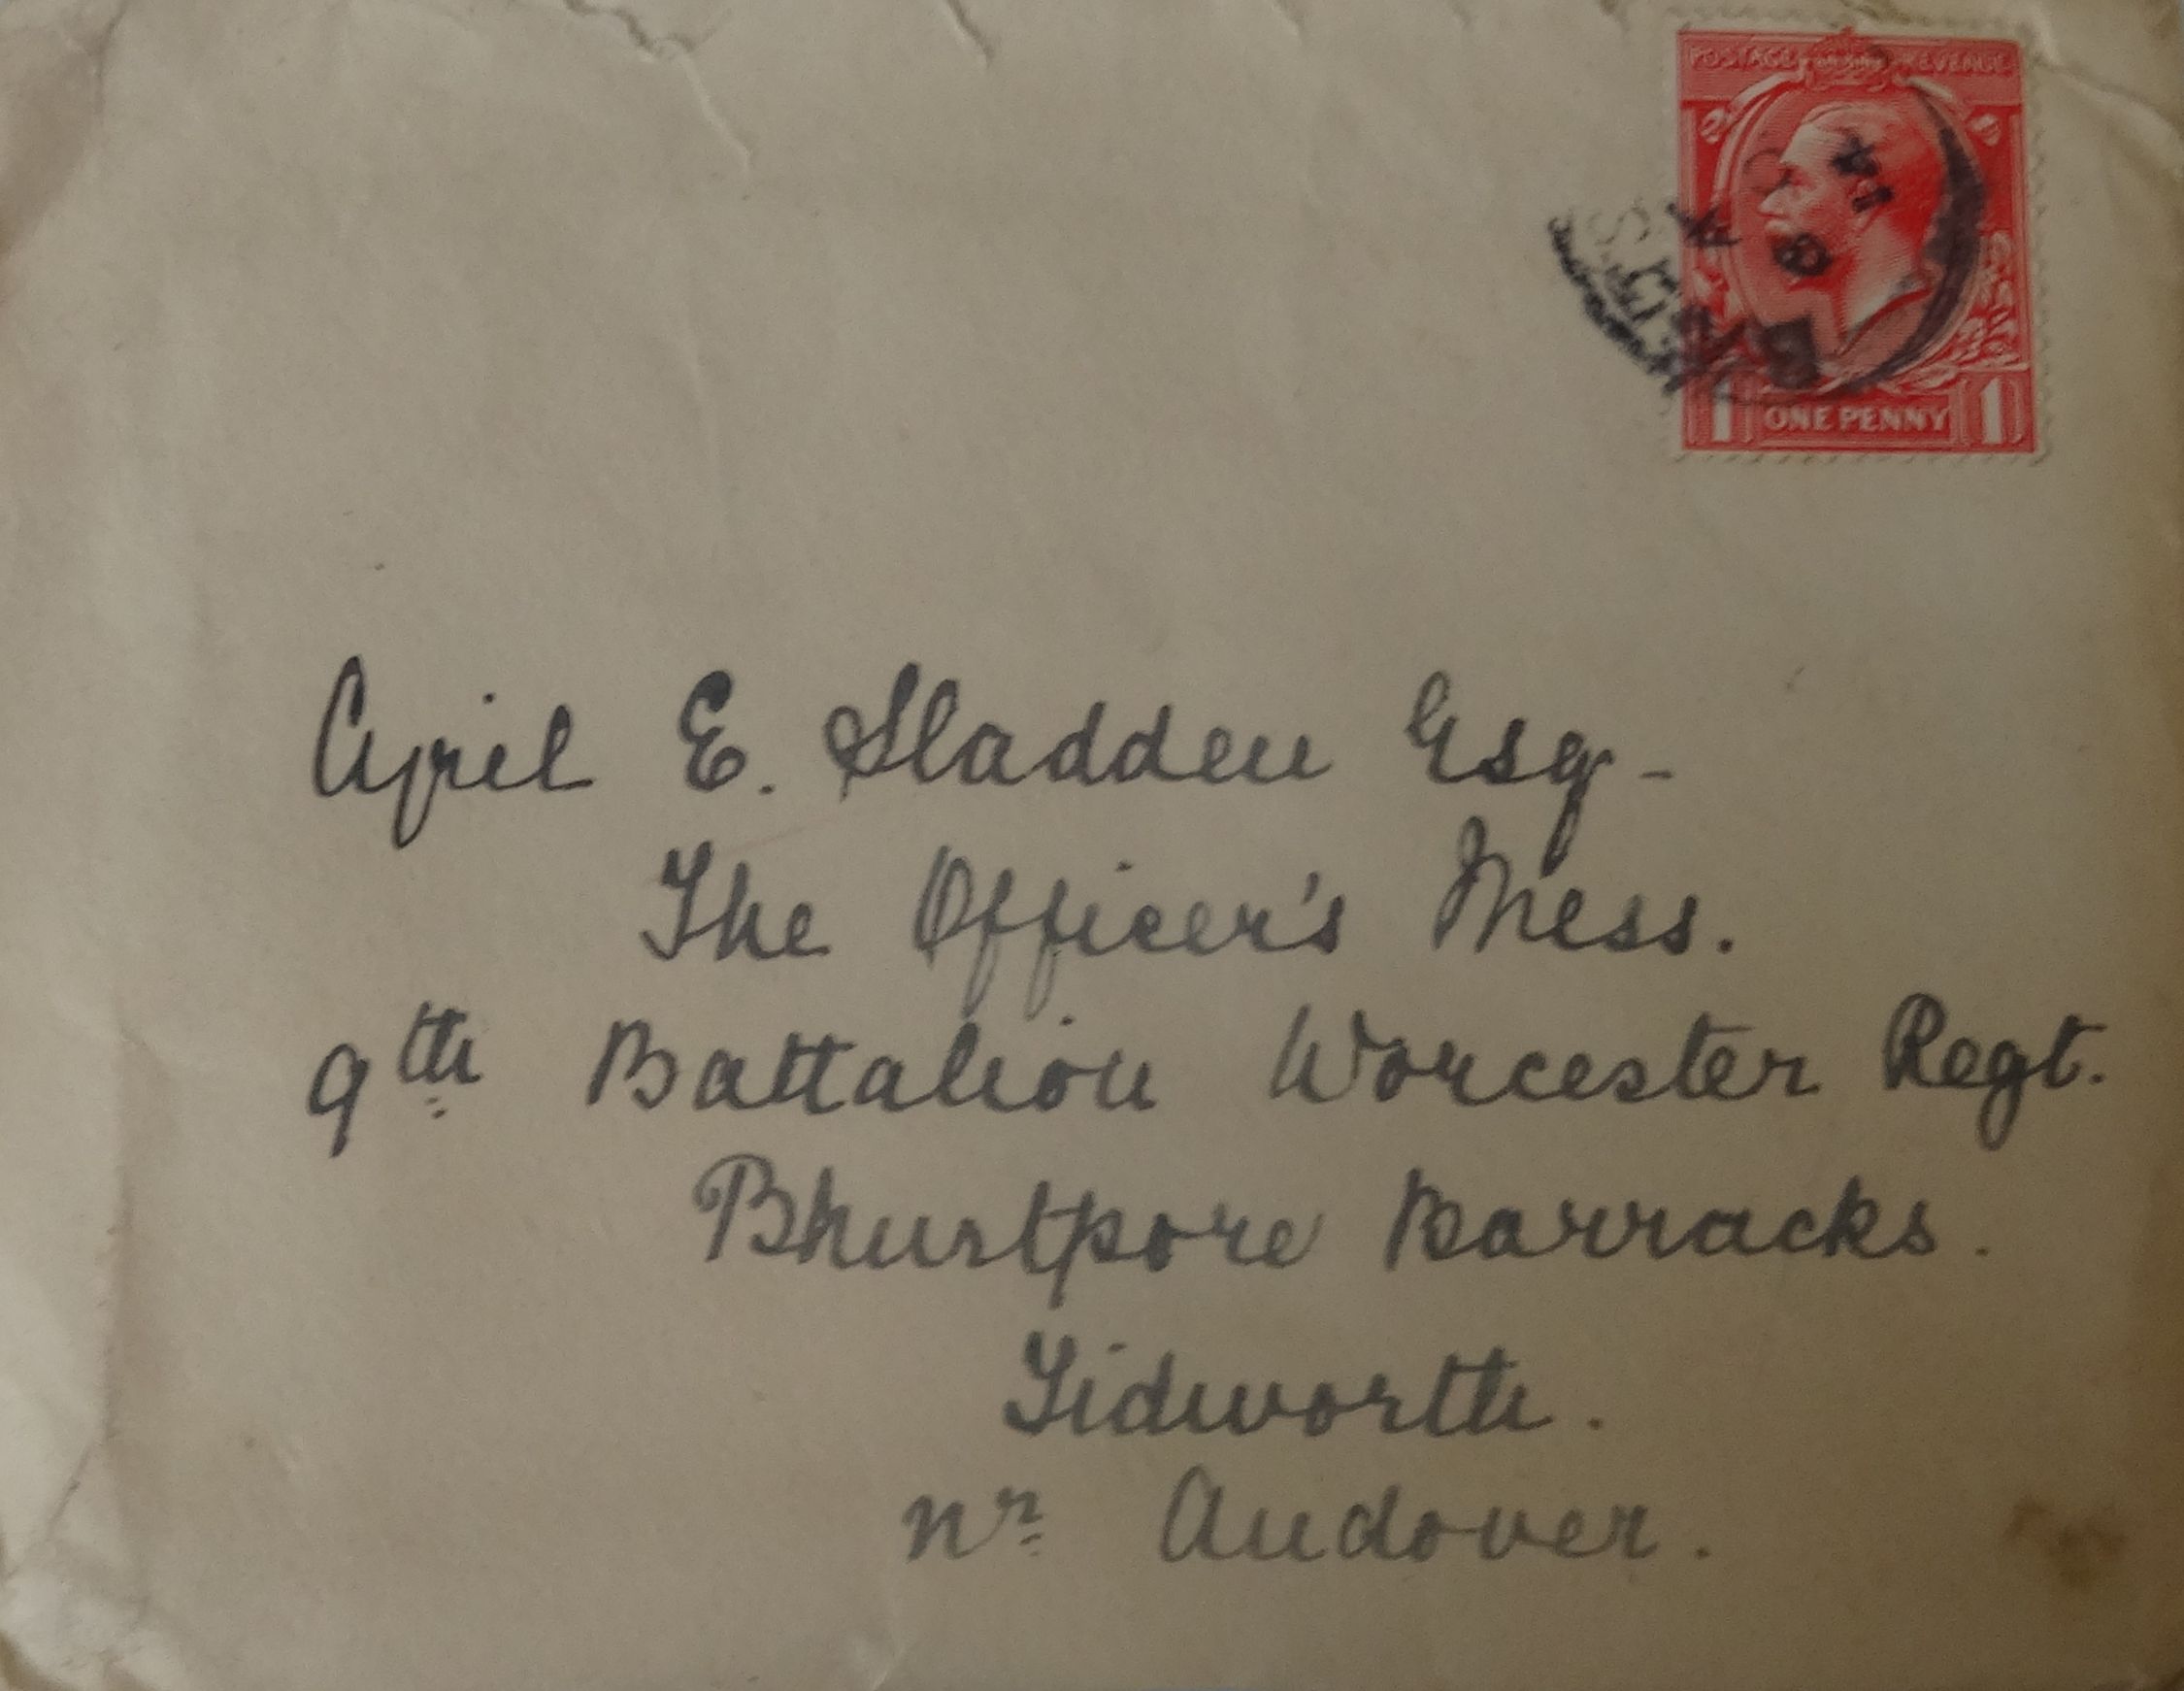 POSTAGE REVENUE
1 ONE PENNY 1
Cyril E. Sladden Esq-
The Officer's Mess.
9th Battalion Worcester Regt.
Bhurtpore Barracks.
Tidworth.
nr Andover.